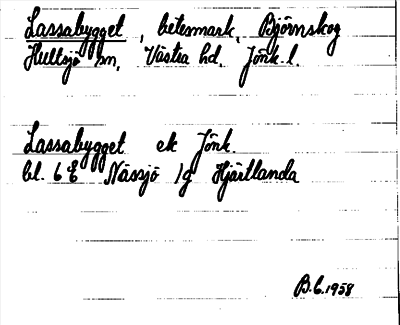 Lassabygget, betesmark, Björnskog
Hultsjö sn, Västra hd, Jönk. l.
Lassabygget ek Jönk.
bl. 6 E Nässjö 1g Hjärtlanda
B.C. 1958